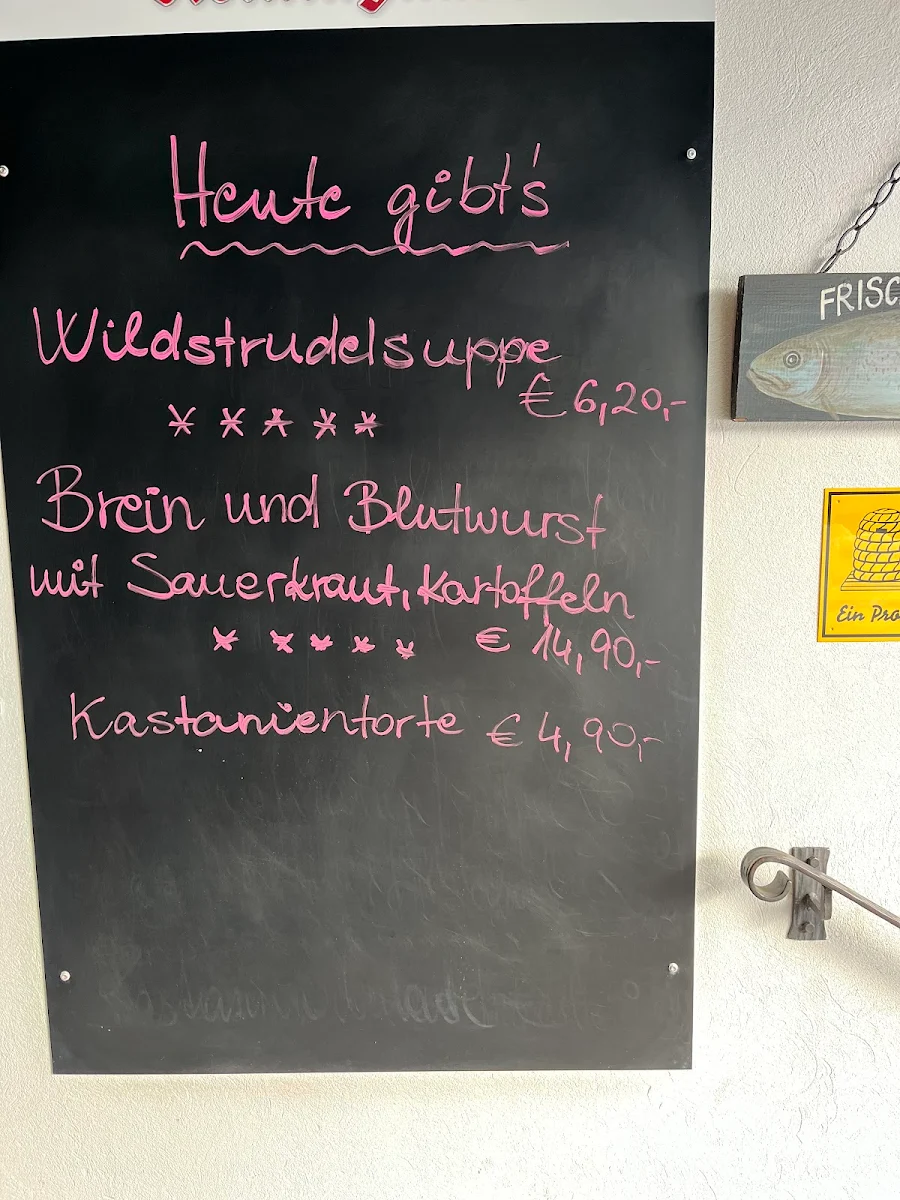 Heute gibt's
Wildstrudelsuppe
€ 6,20,-
* * * * *
Brein und Blutwurst
mit Sauerkraut, Kartoffeln
* * * * * € 14,90,-
Kastanientorte € 4,90,-
FRISC
Ein Pro